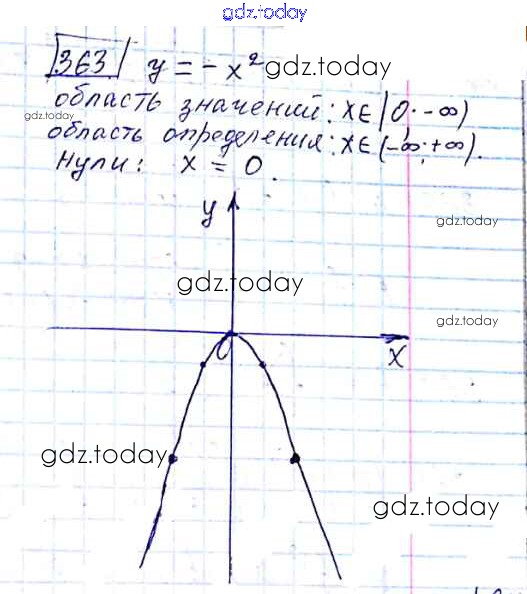 gdz.today
363 y = - x² gdz.today
gdz.today
область значений: x ∈ [0; -∞)
область определения: x ∈ (-∞; +∞).
Нули: x = 0.
y
gdz.today
gdz.today
gdz.today
0
x
gdz.today
gdz.today